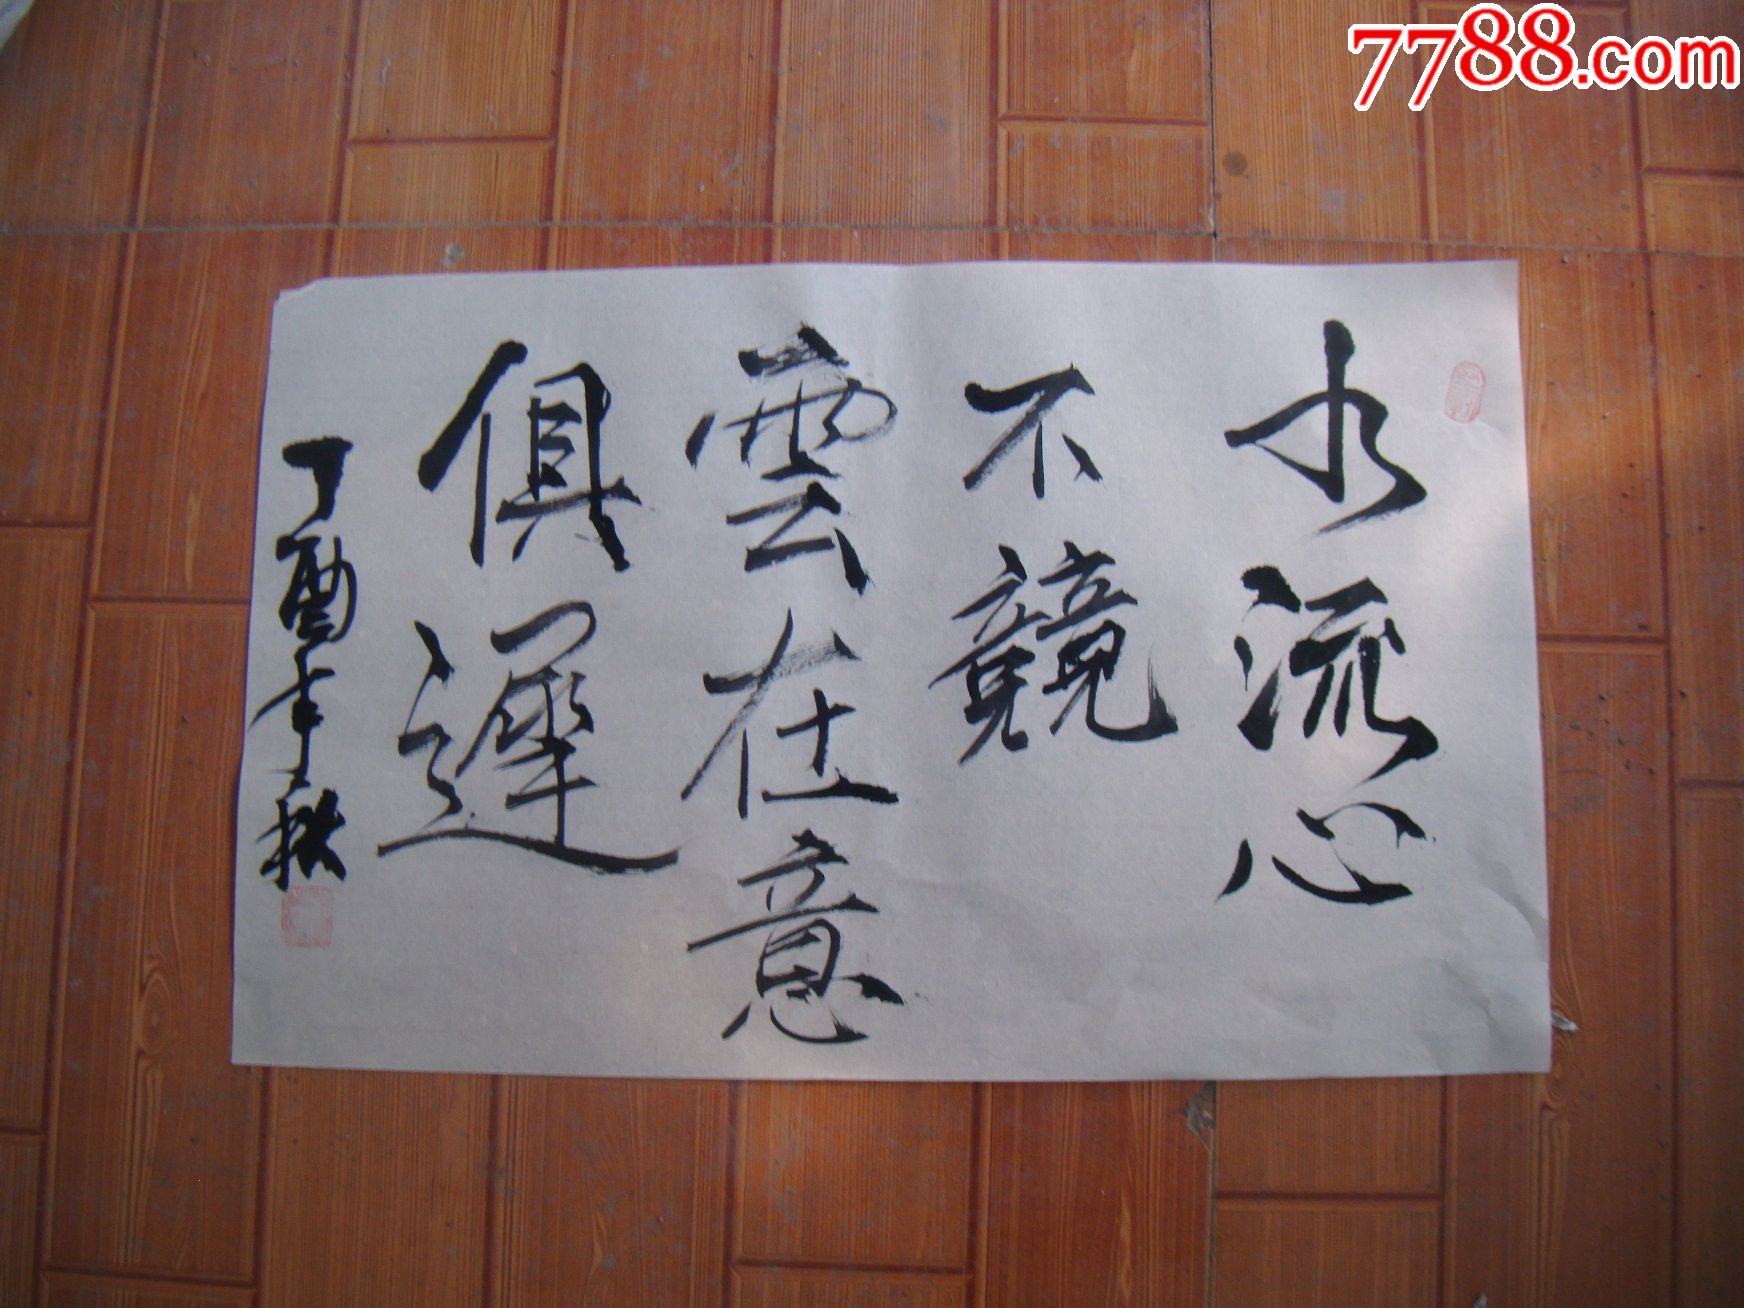 水流心
不競
雲在意
俱遲
丁酉年秋
7788.com